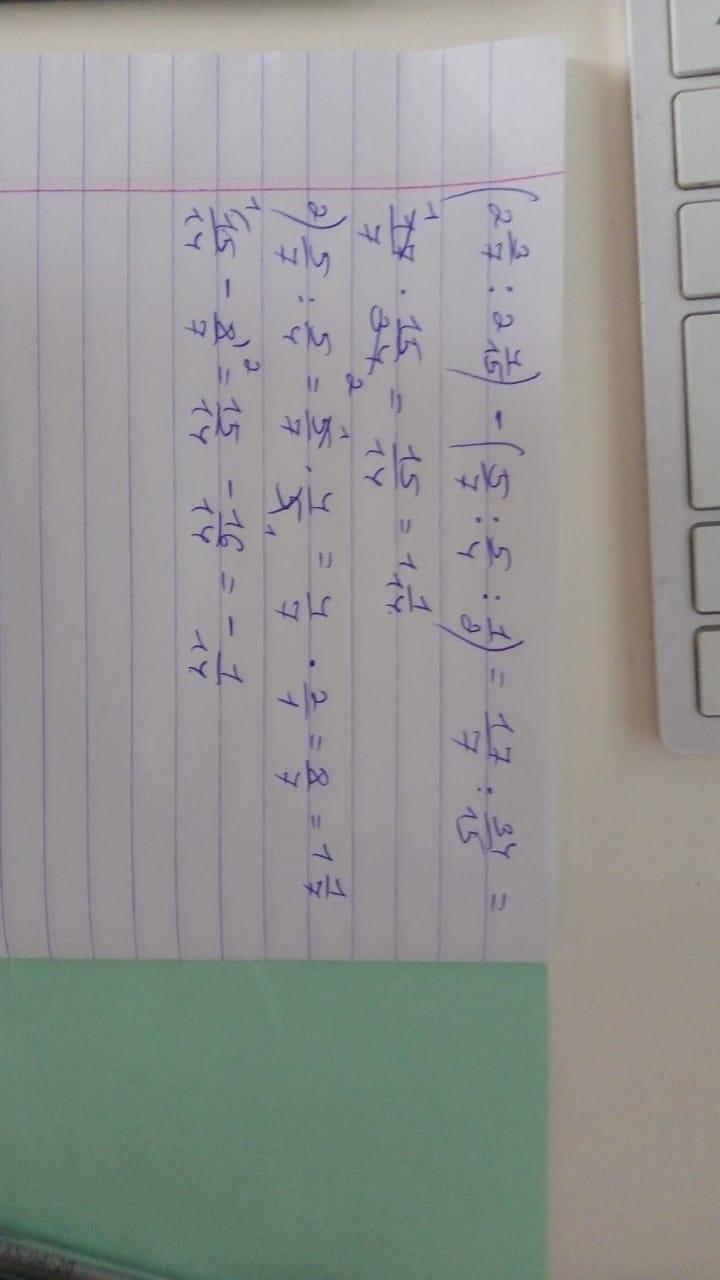 (2 3/7 : 2 4/15) - (5/7 : 5/4 : 1/2) = 17/7 : 34/15 =
17/7 · 15/34 = 15/14 = 1 1/14
2) 5/7 : 5/4 = 5/7 · 4/5 = 4/7 · 2/1 = 8/7 = 1 1/7
15/14 - 8/7 = 15/14 - 16/14 = - 1/14